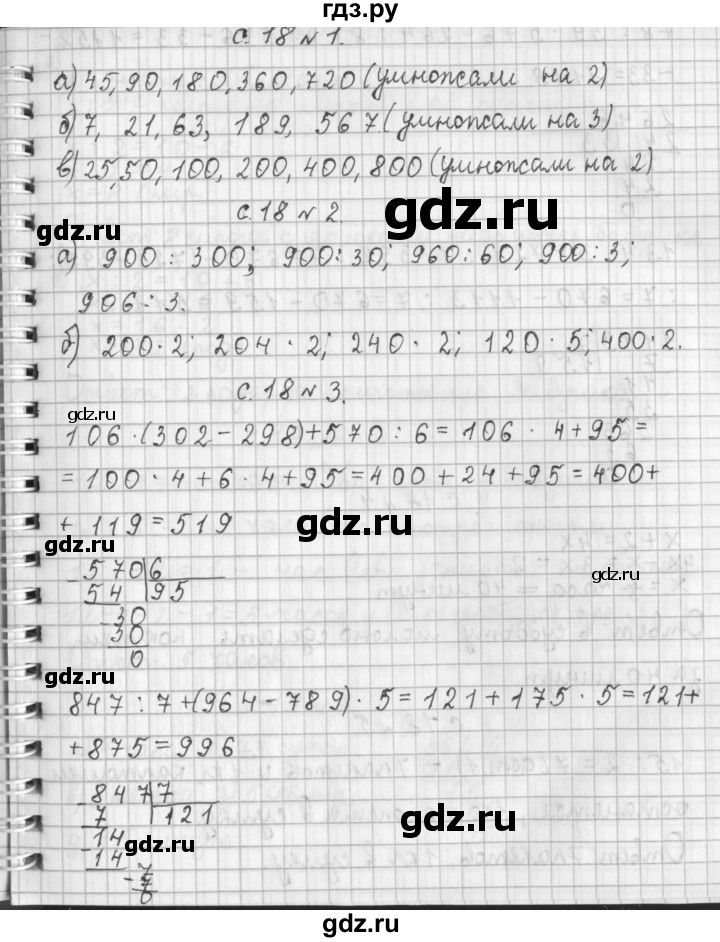 гдз.ру
с. 18 № 1.
а) 45, 90, 180, 360, 720 (умножали на 2)
б) 7, 21, 63, 189, 567 (умножали на 3)
в) 25, 50, 100, 200, 400, 800 (умножали на 2)
с. 18 № 2.
gdz.ru
gdz.ru
а) 900 : 300; 900 : 30; 960 : 60; 900 : 3;
906 : 3.
б) 200 · 2; 204 · 2; 240 · 2; 120 · 5; 400 · 2.
с. 18 № 3.
gdz.ru
106 · (302 - 298) + 570 : 6 = 106 · 4 + 95 =
= 100 · 4 + 6 · 4 + 95 = 400 + 24 + 95 = 400 +
+ 119 = 519
gdz.ru
gdz.ru
gdz.ru
- 570 | 6
54 | 95
- 30
30
0
gdz.ru
847 : 7 + (964 - 789) · 5 = 121 + 175 · 5 = 121 +
+ 875 = 996
gdz.ru
- 847 | 7
7 | 121
- 14
14
- 7
7
0
gdz.ru
gdz.ru
gdz.ru
gdz.ru